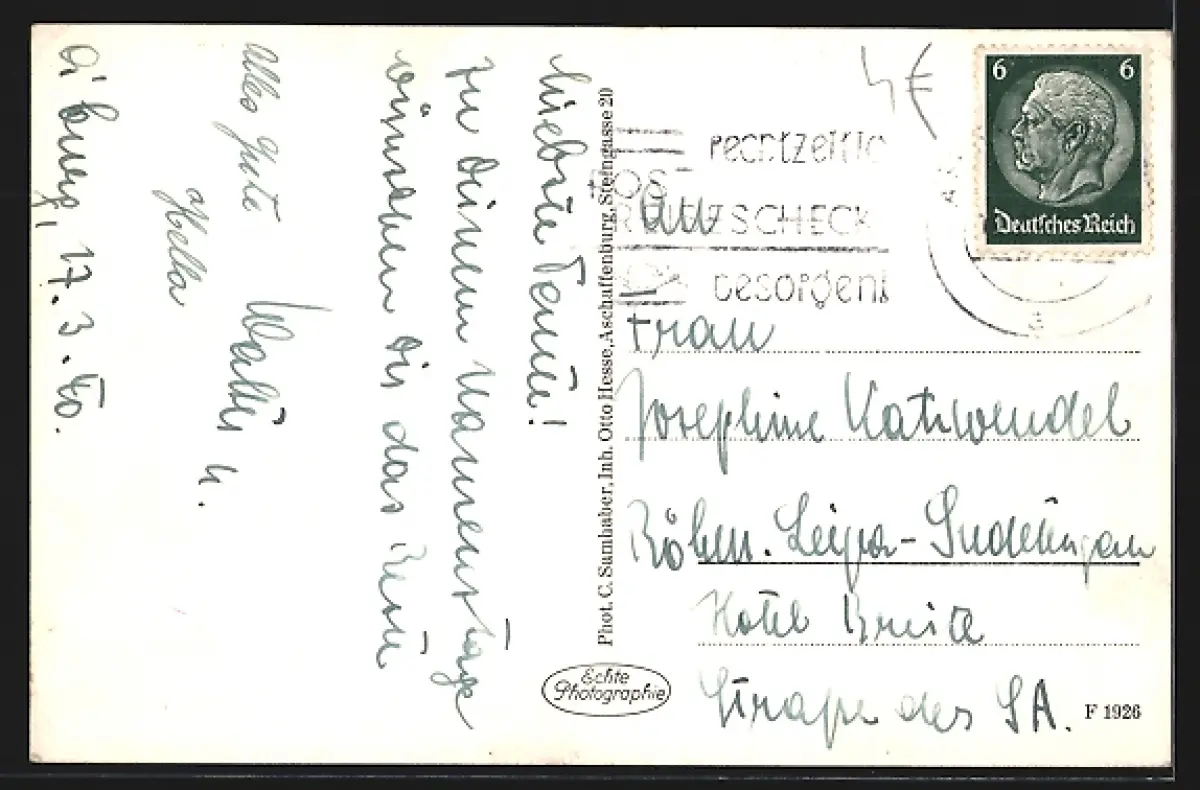 Liebste Fanni!
Zu Deinem Namenstage
wünschen Dir das Beste
Alles Gute Walli u.
Hella
burg, 17. 3. 40.
Phot. C. Samhaber, Inh. Otto Hesse, Aschaffenburg, Steingasse 20
Echte
Photographie
4 €
6 6
Deutsches Reich
rechtzeitig
POST
REISESCHECK
besorgen!
An
Frau
Josephine Katzwendel
Böhm. Leipa - Sudetengau
Hotel
Straße des SA.
F 1926